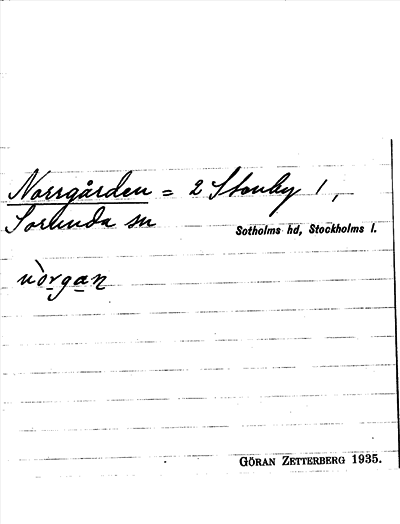 Norrgården = 2 Stonby 1,
Sorunda sn
Sotholms hd, Stockholms l.
nòrgan
GÖRAN ZETTERBERG 1935.